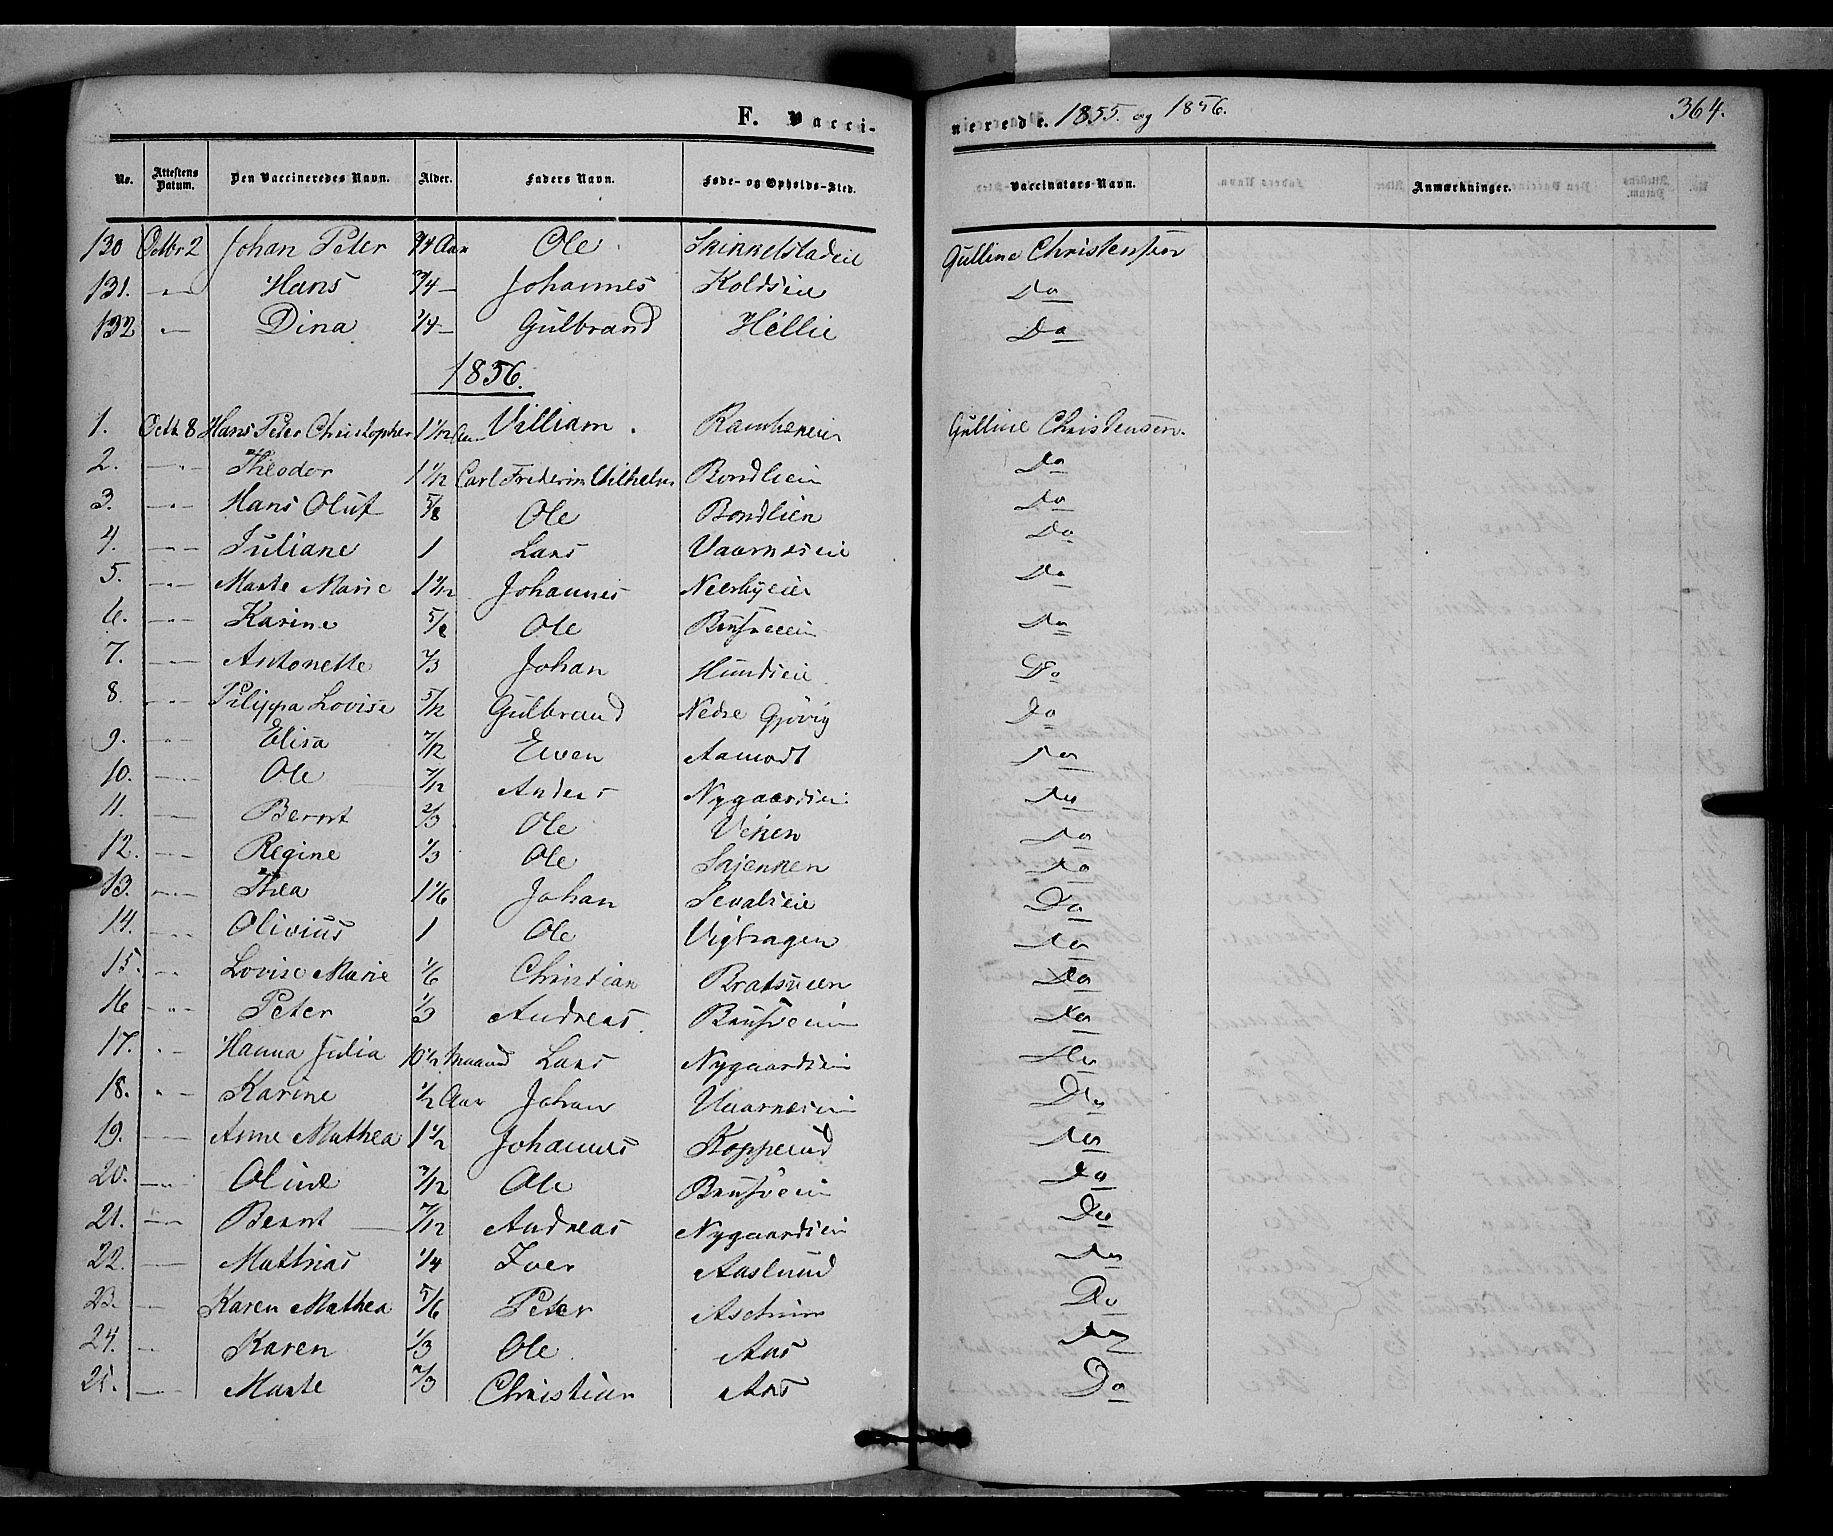 F. Vacci-
nerende. 1855. og 1856.
364.
No. Attestens Datum. Den Vaccineredes Navn. Alder. Faders Navn. Føde- og Opholds-Sted. Vaccinators Navn. Anmærkninger.
130 Octbr 2 Johan Peter 3/4 Aar Ole Skinkelstadeie Gulline Christensen
131. -"- Hans 3/4 - Johannes Koldseie Do
132 -"- Dina 1/4 - Gulbrand Hellie Do
1856.
1. Octb 8 Hans Peter Christopher 1 1/12 Aar Villiam. Gulline Christensen.
2. -"- Theodor 1 1/12 Carl Frederik Vilhelm Bondlien Do
3. -"- Hans Oluf 5/8 Ole Bondlien Do
4. -"- Juliane 1 Lars Vaarneseie Do
5. -"- Marte Marie Johannes Neerbyeie Do
6. -"- Karine Ole Do
7. -"- Antonette 2/3 Johan Hundseie Do
8. -"- Pilippa Lovise 5/12 Gulbrand Nedre Gjøvig Do
9. -"- Elisa 7/12 Even Aamodt Do
10. -"- Ole 7/12 Anders Nygaardseie Do
11. -"- Bernt 2/3 Ole Veken Do
12. -"- Regine 1/3 Ole Do
13. -"- Thea 1 1/6 Johan Sevalseie Do
14. -"- Olivius 1 Ole Vighagen Do
15. -"- Lovise Marie 1/6 Christian Bratsveen Do
16 -"- Peter 1/3 Andreas. Do
17. -"- Hanna Julia 10 1/2 Maaned Lars Nygaardseie Do
18. -"- Karine 1/2 Aar Johan Vaarneseie Do
19. -"- Anne Mathea 1 1/2 Johannes Kopperud Do
20. -"- Oline Ole Do
21. -"- Bernt 7/12 Andreas Nygaardseie Do
22. -"- Mathias 1/4 Iver Aaslund Do
23. -"- Karen Mathea 5/6 Peter Do
24. -"- Karen 1/3 Ole Aas Do
25. -"- Marte 2/3 Christian Aas Do